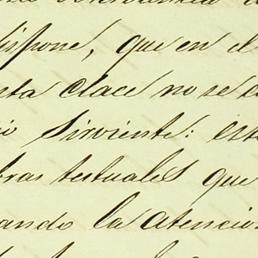 dispone, que en el
esta clace no se
sirviente: est
bras testuales que
ando la atencion